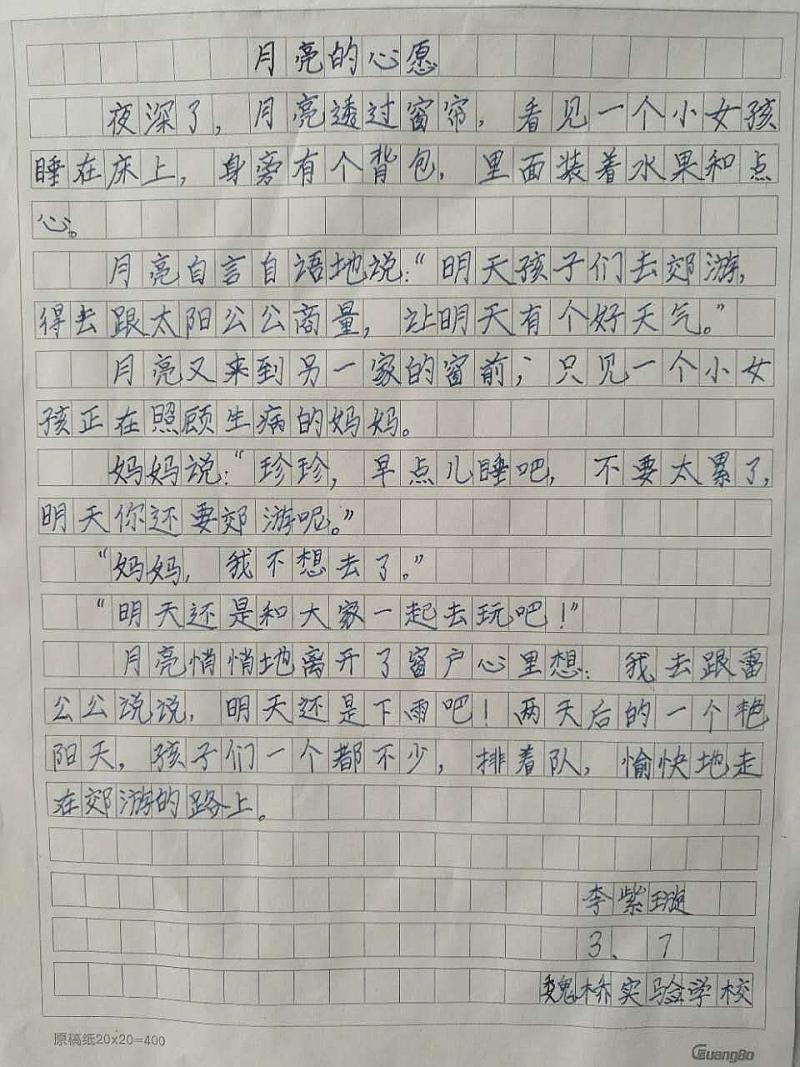 月亮的心愿
夜深了，月亮透过窗帘，看见一个小女孩
睡在床上，身旁有个背包，里面装着水果和点
心。
月亮自言自语地说：“明天孩子们去郊游，
得去跟太阳公公商量，让明天有个好天气。”
月亮又来到另一家的窗前，只见一个小女
孩正在照顾生病的妈妈。
妈妈说：“珍珍，早点儿睡吧，不要太累了，
明天你还要郊游呢。”
“妈妈，我不想去了。”
“明天还是和大家一起去玩吧！”
月亮悄悄地离开了窗户心里想：我去跟雷
公公说说，明天还是下雨吧！两天后的一个艳
阳天，孩子们一个都不少，排着队，愉快地走
在郊游的路上。
李紫璇
3、7
魏桥实验学校
原稿纸20x20=400
GuangBo